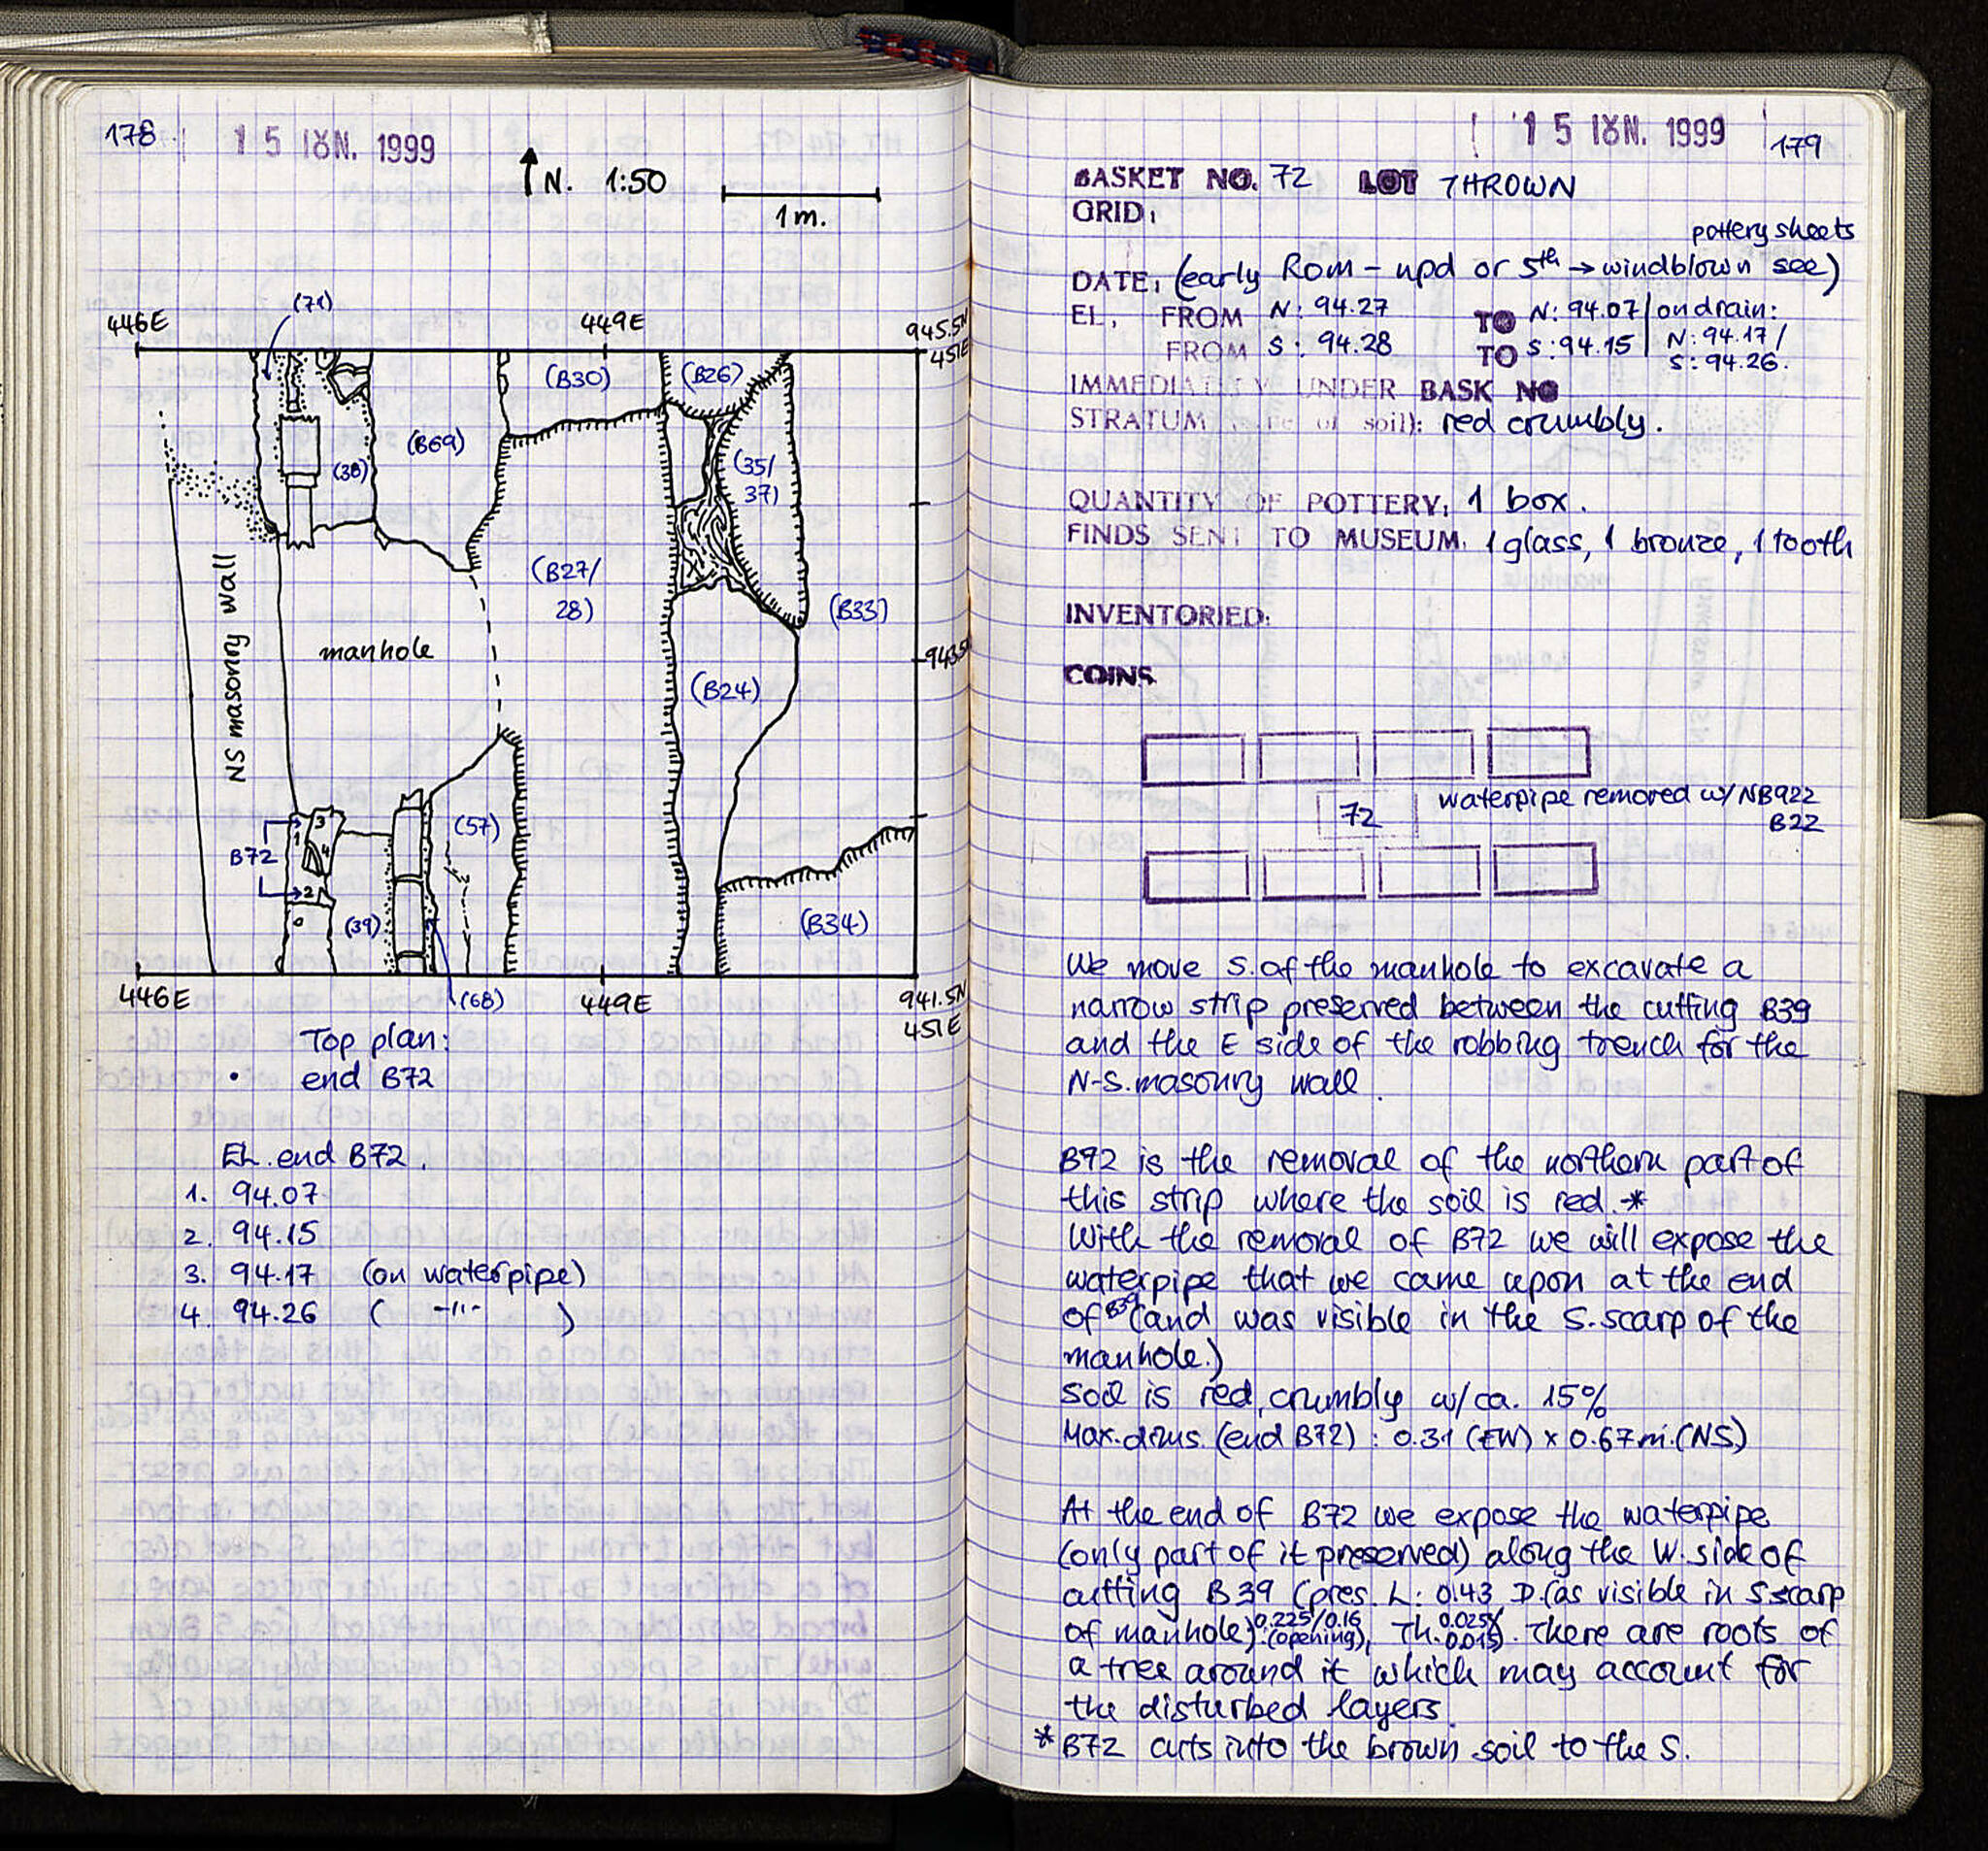 178
15 IΟΥΝ. 1999
N. 1:50
1m.
(71)
446E
449E
945.5N
451E
(B30)
(B26)
(B69)
(38)
(35/
37)
(B27/
28)
(B33)
943.5N
NS masonry wall
manhole
(B24)
3
1
4
B72
2
(57)
(39)
(B34)
446E
(68)
449E
941.5N
451E
Top plan:
• end B72
EL. end B72.
1. 94.07
2. 94.15
3. 94.17 (on waterpipe)
4. 94.26 ( -"- )
15 IΟΥΝ. 1999
179
BASKET NO. 72 LOT THROWN
GRID:
pottery sheets
DATE: (early Rom – upd or 5th → windblown see)
EL. FROM N: 94.27 TO N: 94.07 / on drain:
FROM S: 94.28 TO S: 94.15 | N: 94.17 /
S: 94.26.
IMMEDIATELY UNDER BASK NO
STRATUM of soil): red crumbly.
QUANTITY OF POTTERY: 1 box.
FINDS SENT TO MUSEUM: 1 glass, 1 bronze, 1 tooth
INVENTORIED:
COINS
72
waterpipe removed w/ NB922
B22
We move S. of the manhole to excavate a
narrow strip preserved between the cutting B39
and the E side of the robbing trench for the
N-S. masonry wall.
B72 is the removal of the northern part of
this strip where the soil is red.*
With the removal of B72 we will expose the
waterpipe that we came upon at the end
of B39 (and was visible in the S. scarp of the
manhole.)
Soil is red, crumbly w/ ca. 15%
Max. dims. (end B72): 0.31 (EW) x 0.67m. (NS)
At the end of B72 we expose the waterpipe
(only part of it preserved) along the W. side of
cutting B39 (pres. L: 0.43 D. (as visible in S scarp
of manhole): 0.225/0.16 (opening), Th. 0.025/0.015). There are roots of
a tree around it which may account for
the disturbed layers.
* B72 cuts into the brown soil to the S.